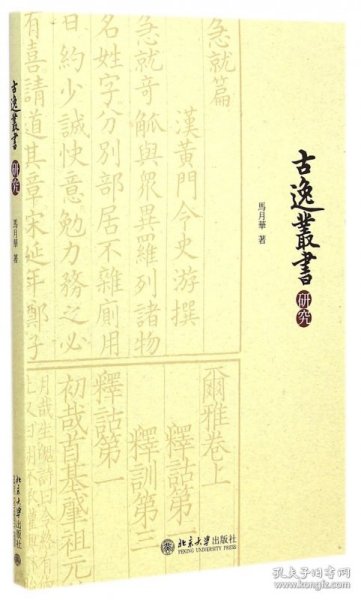 古逸叢書
研究
馬月華 著
古逸叢書
研究
馬月華 著
急就篇
漢黃門令史游撰
急就奇觚與衆異羅列諸物
名姓字分別部居不雜廁用
日約少誠快意勉力務之必
有喜請道其章宋延年鄭子
爾雅卷上
釋詁第一
釋訓第三
釋詁第一
初哉首基肈祖元
北京大學出版社
北京大學出版社
PEKING UNIVERSITY PRESS
孔夫子旧书网